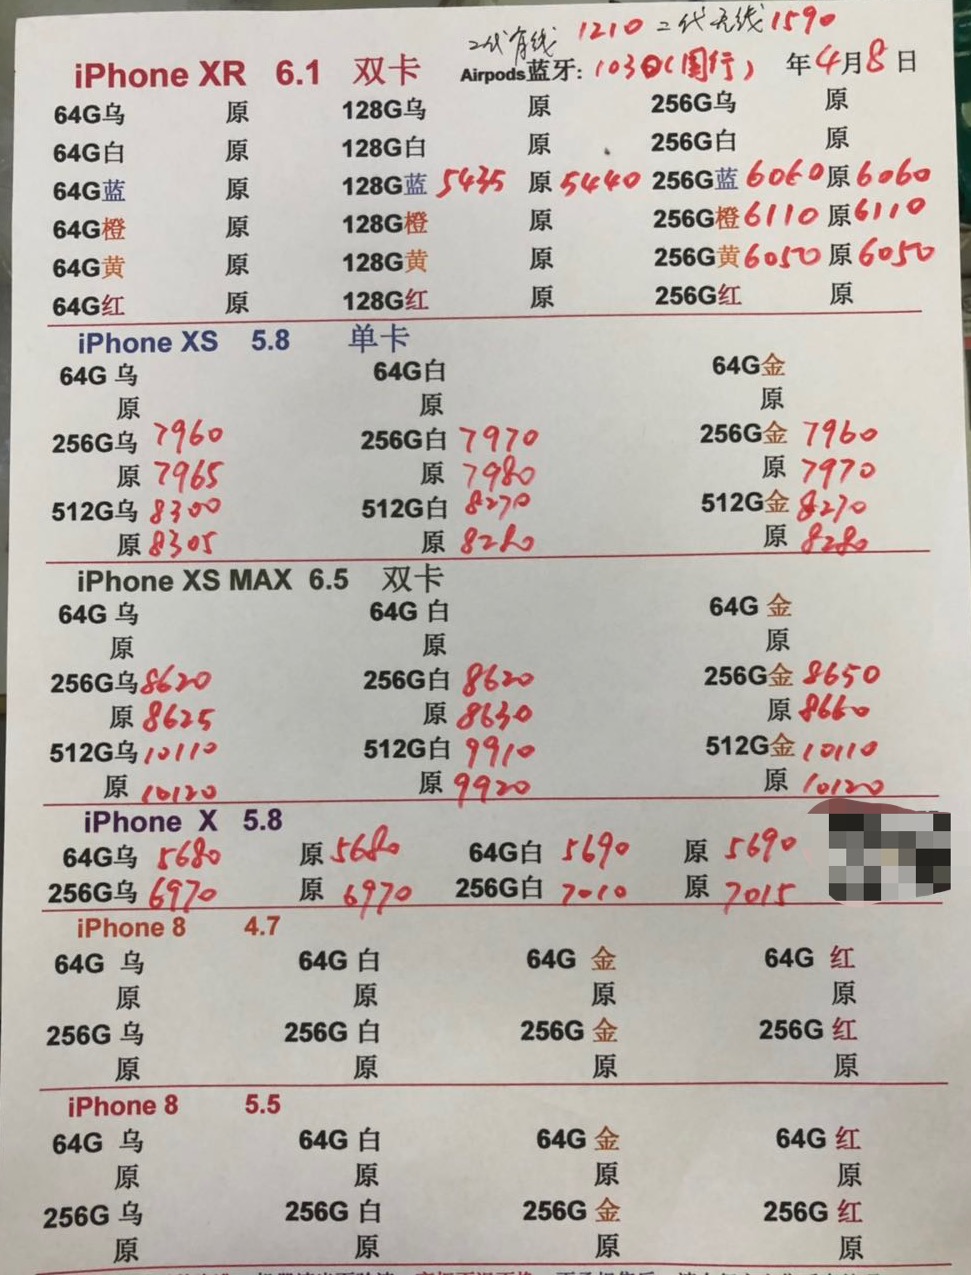 二代有线 1210 二代无线1590
iPhone XR 6.1 双卡 Airpods蓝牙:1030(国行) 年4月8日
64G乌 原 128G乌 原 256G乌 原
64G白 原 128G白 原 256G白 原
64G蓝 原 128G蓝 5435 原 5440 256G蓝 6060 原 6060
64G橙 原 128G橙 原 256G橙 6110 原 6110
64G黄 原 128G黄 原 256G黄 6050 原 6050
64G红 原 128G红 原 256G红 原
iPhone XS 5.8 单卡
64G 乌 64G白 64G金
原 原 原
256G乌 7960 256G白 7970 256G金 7960
原 7965 原 7980 原 7970
512G乌 8300 512G白 8270 512G金 8270
原 8305 原 8280 原 8280
iPhone XS MAX 6.5 双卡
64G 乌 64G 白 64G 金
原 原 原
256G乌 8620 256G白 8620 256G金 8650
原 8625 原 8630 原 8660
512G乌 10110 512G白 9910 512G金 10110
原 10120 原 9920 原 10120
iPhone X 5.8
64G乌 5680 原 5680 64G白 5690 原 5690
256G乌 6970 原 6970 256G白 7010 原 7015
iPhone 8 4.7
64G 乌 64G 白 64G 金 64G 红
原 原 原 原
256G 乌 256G 白 256G 金 256G 红
原 原 原 原
iPhone 8 5.5
64G 乌 64G 白 64G 金 64G 红
原 原 原 原
256G 乌 256G 白 256G 金 256G 红
原 原 原 原